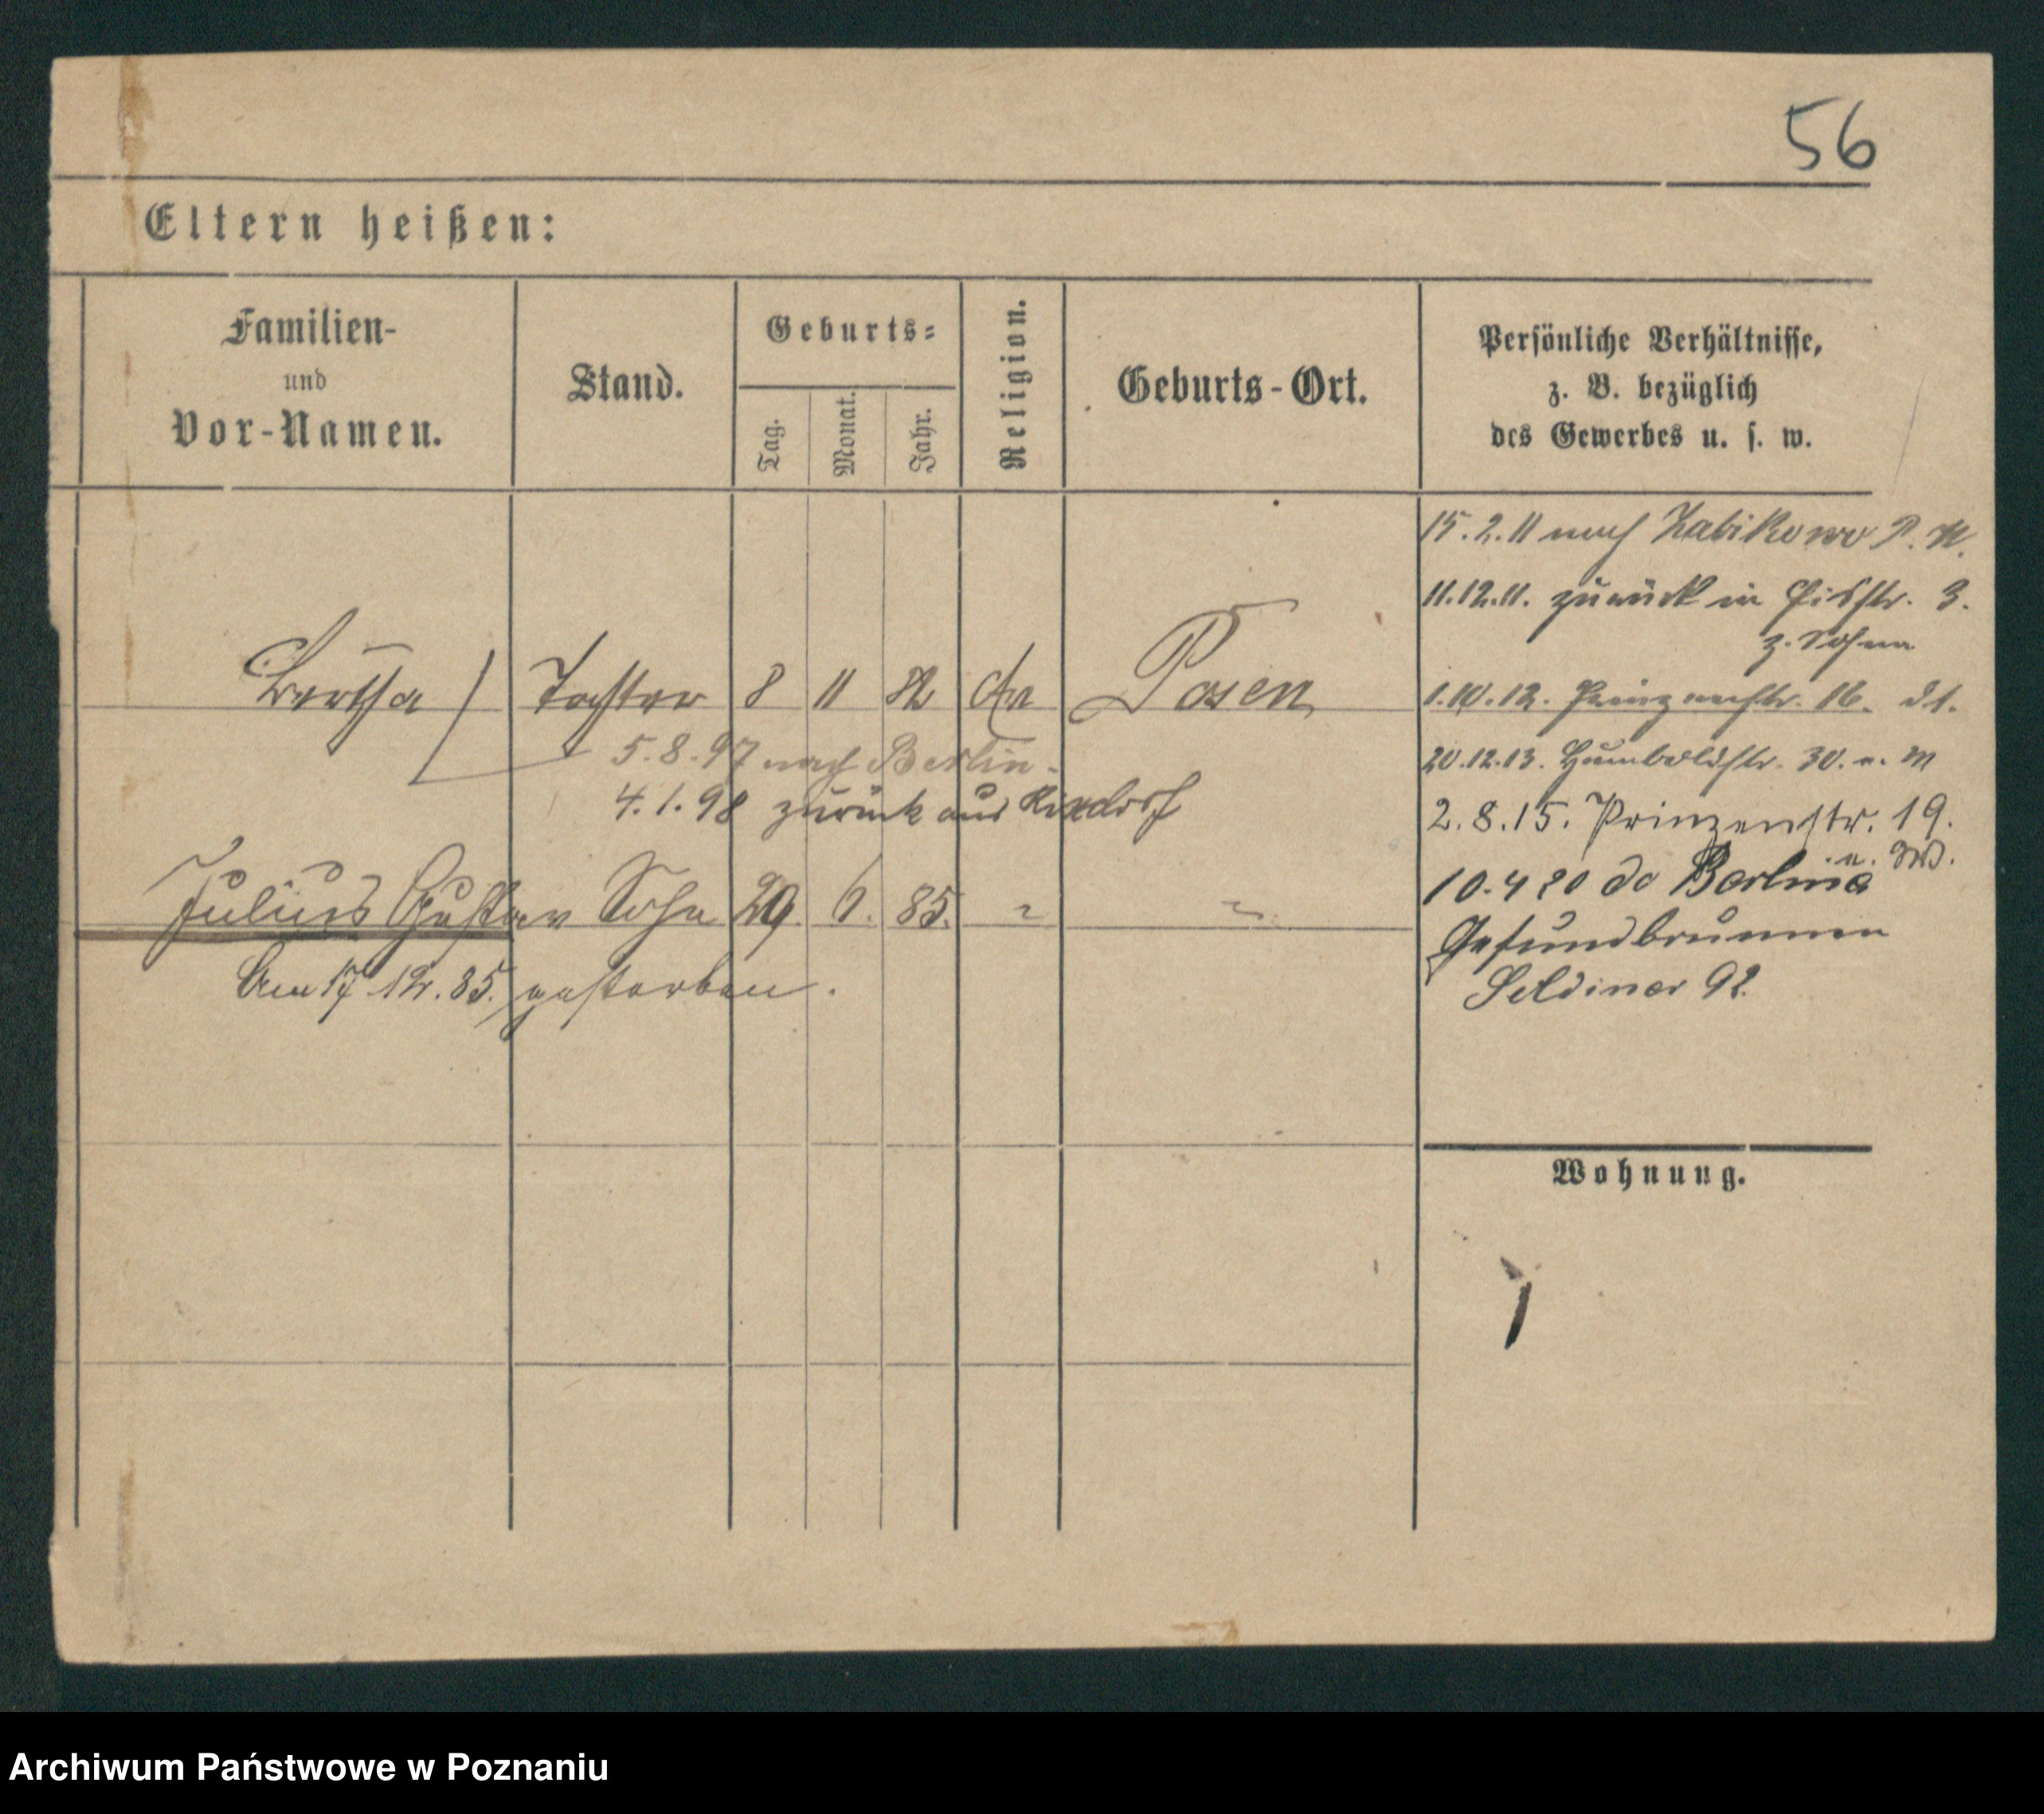 56
Eltern heißen:
Familien-
und
Vor-Namen.
Stand.
Geburts-
Tag.
Monat.
Jahr.
Religion.
Geburts-Ort.
Persönliche Verhältnisse,
z. B. bezüglich
des Gewerbes u. s. w.
Bertha Tochter 8 11 82 Posen
5.8.97 nach Berlin.
4.1.98 zurück aus Rixdorf
Julius Gustav Sohn 29. 6. 85.
Am 17 12. 85. gestorben.
15.2.11 nach Zabikowo P. W.
11.12.11. zurück in 3.
z. Sohne
1.10.12. Prinzenstr. 16.
20.12.13. Humboldtstr. 30. a. M
2.8.15. Prinzenstr. 19.
10.4 20 do Berlina
Gesundbrunnen
Soldiner 92.
Wohnung.
Archiwum Państwowe w Poznaniu